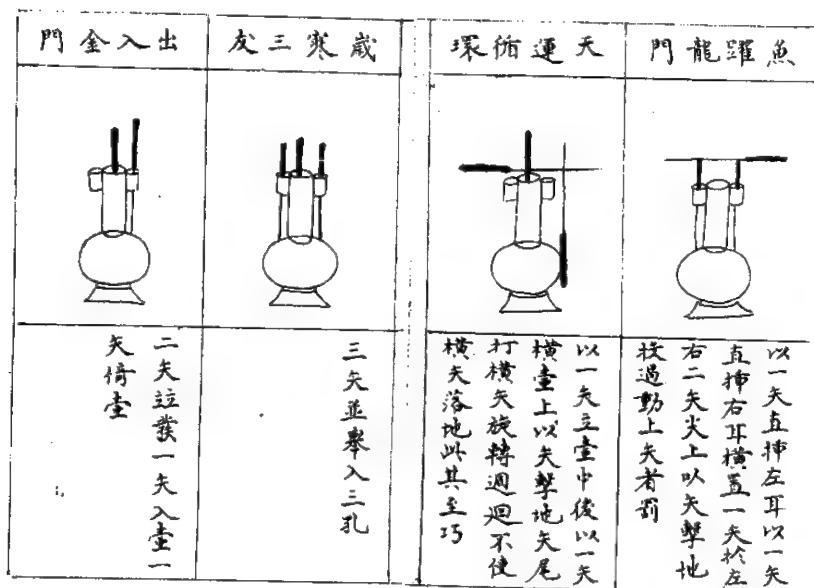 魚躍龍門
以一矢直揷左耳以一矢
直揷右耳橫置一矢於左
右二矢尖上以矢擊地
技過動上矢者罰
天運循環
以一矢立壷中後以一矢
橫壷上以矢擊地矢尾
打橫矢旋轉週迴不使
橫矢落地此其至巧
歲寒三友
三矢並舉入三孔
出入金門
二矢竝發一矢入壷一
矢倚壷